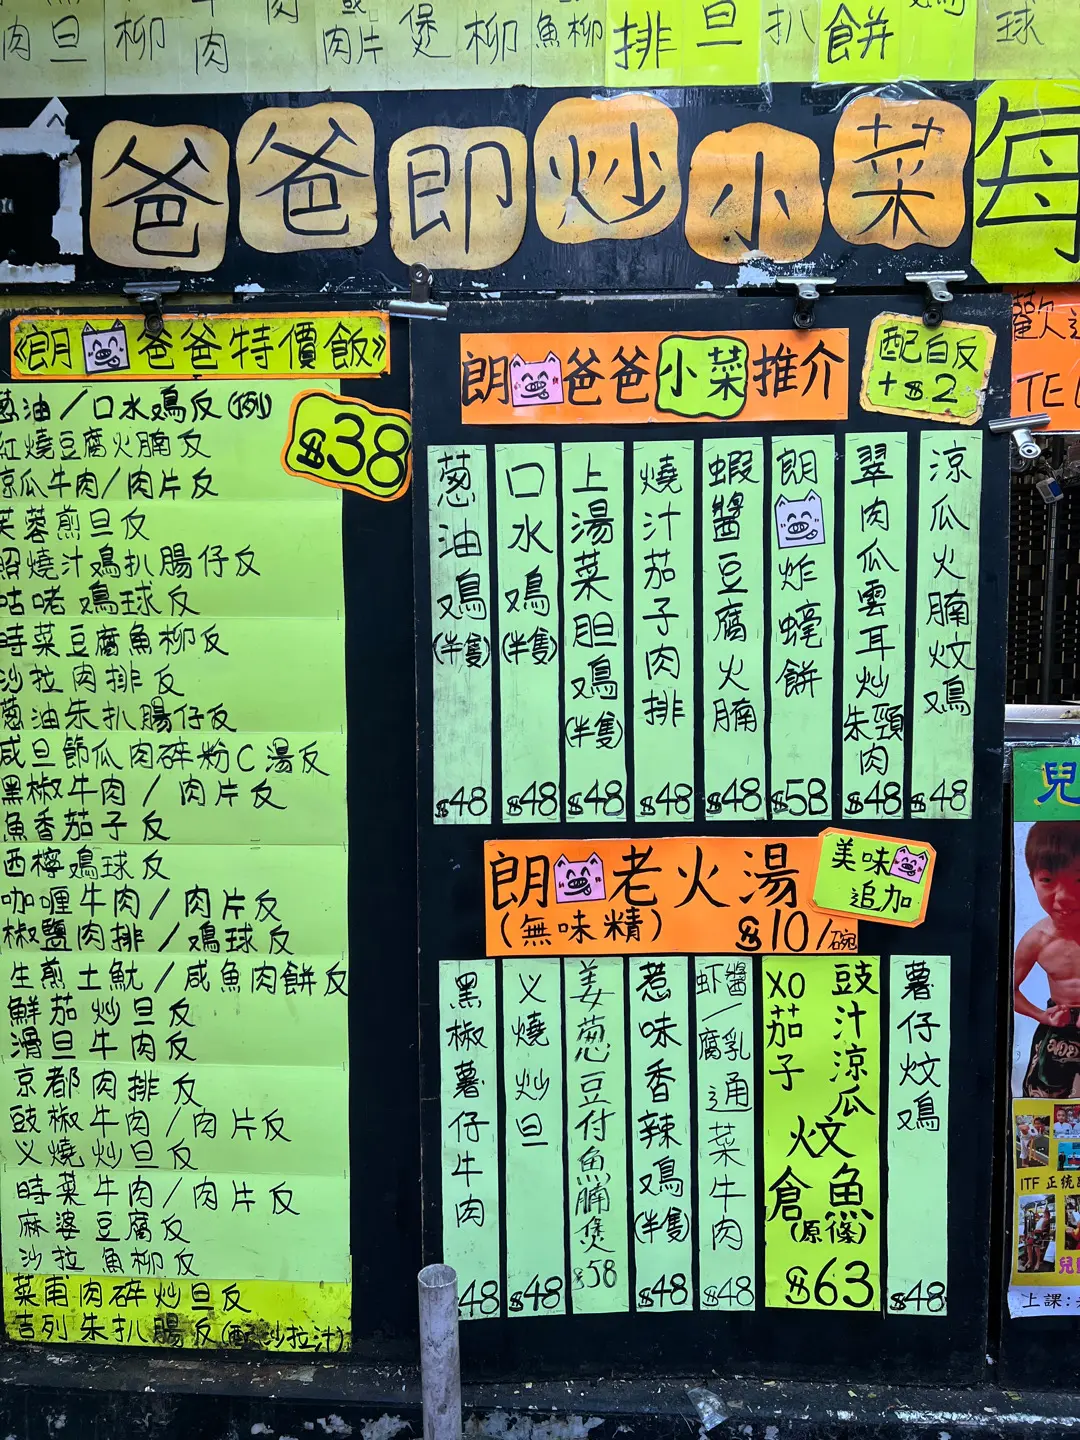 肉旦
柳
肉
肉片
煲
柳
魚柳
排
旦
扒
餅
球
爸爸即炒小菜
每
《朗爸爸特價飯》
$38
葱油/口水鳮反(例)
紅燒豆腐火腩反
涼瓜牛肉/肉片反
芙蓉煎旦反
照燒汁鳮扒腸仔反
咕咾鳮球反
時菜豆腐魚柳反
沙拉肉排反
葱油朱扒腸仔反
咸旦節瓜肉碎粉C湯反
黑椒牛肉/肉片反
魚香茄子反
西檸鳮球反
咖喱牛肉/肉片反
椒鹽肉排/鳮球反
生煎土魷/咸魚肉餅反
鮮茄炒旦反
滑旦牛肉反
京都肉排反
豉椒牛肉/肉片反
义燒炒旦反
時菜牛肉/肉片反
麻婆豆腐反
沙拉魚柳反
菜甫肉碎炒旦反
吉列朱扒腸反(配沙拉汁)
朗爸爸小菜推介
配白反
+$2
葱油鳮(半隻)$48
口水鳮(半隻)$48
上湯菜胆鳮(半隻)$48
燒汁茄子肉排$48
蝦醬豆腐火腩$48
朗炸蠔餅$58
翠肉瓜雲耳炒朱頸肉$48
涼瓜火腩炆鳮$48
朗老火湯
(無味精) $10/碗
美味
追加
黑椒薯仔牛肉$48
义燒炒旦$48
姜葱豆付魚腩煲$58
惹味香辣鳮(半隻)$48
虾醬/腐乳通菜牛肉$48
XO茄子
豉汁涼瓜
炆
倉魚
(原條)
$63
薯仔炆鳮$48
歡
TE
兒
ITF 正統
兒
上課: